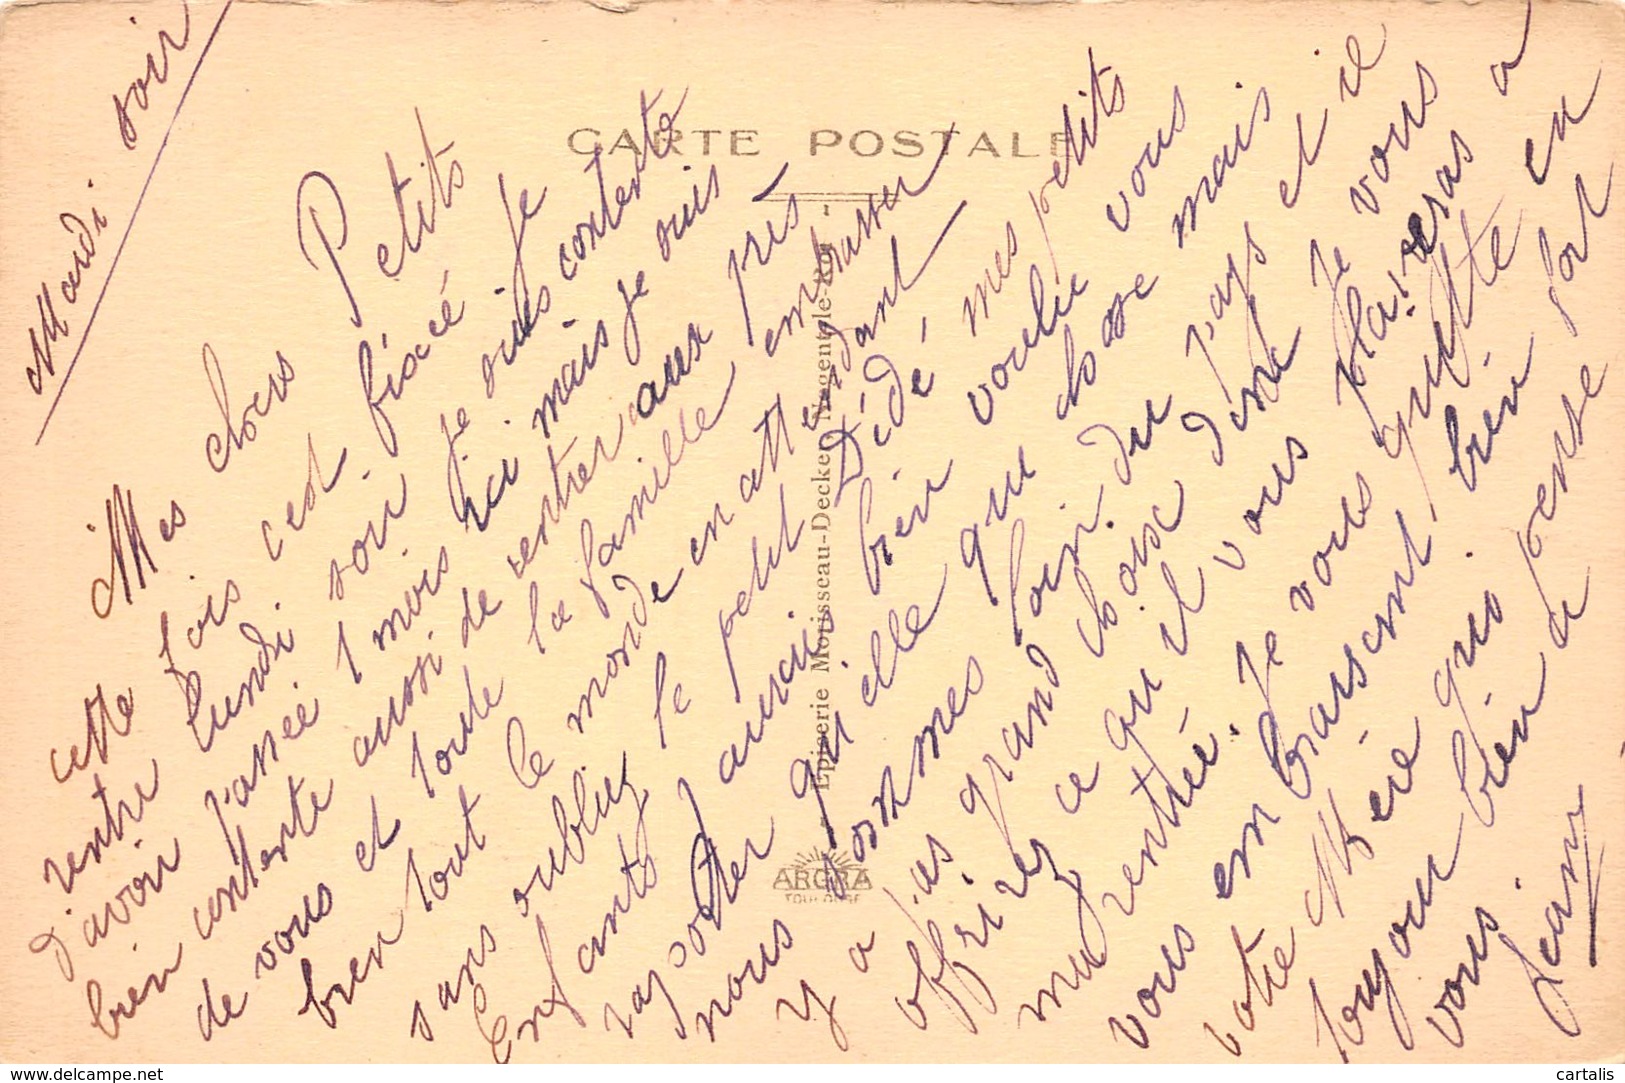 Mardi soir
Mes chers Petits
cette fois c'est fixcé je
rentre lundi soir je suis contente
d'avoir passée 1 mois ici mais je suis
bien contente aussi de rentrer aux près
de vous et toute la famille embrasser
bien tout le monde en attendant
sans oubliez le petit Dédé mes petits
Enfants j'aurais bien voulu vous
rapporter quelle que chosse mais
nous sommes loin du pays et il
y a pas grand choix dine
offrirez ce qu'il vous plaira
ma rentrée. Je vous quitte en
vous embrassant bien fort
votre Mère qui pense a
toujour bien a
vous. Jeanne
CARTE POSTALE
Epicerie Morisseau-Decker, Nogent-le-Roi
ARGRA
TOULOUSE
https://www.delcampe.net
cartalis